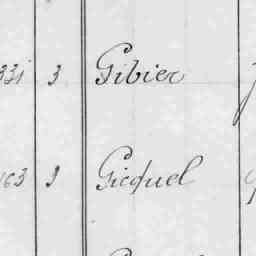 331 3 Gibier
163 9 Gicquel